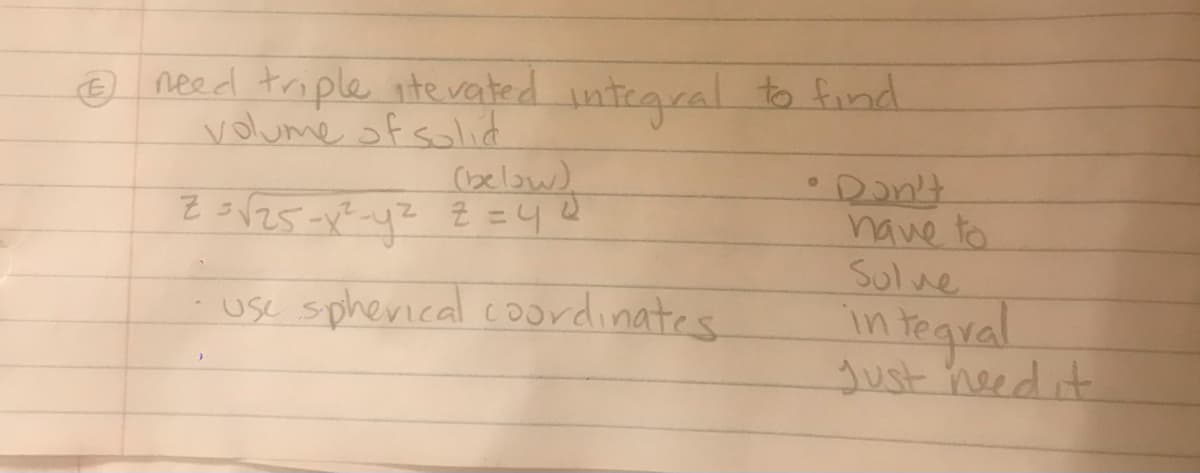 Ⓔ need triple iterated integral to find
volume of solid
(below)
z = √25-x²-y² z = 4
• use spherical coordinates
• Don't
have to
solve
integral
just need it